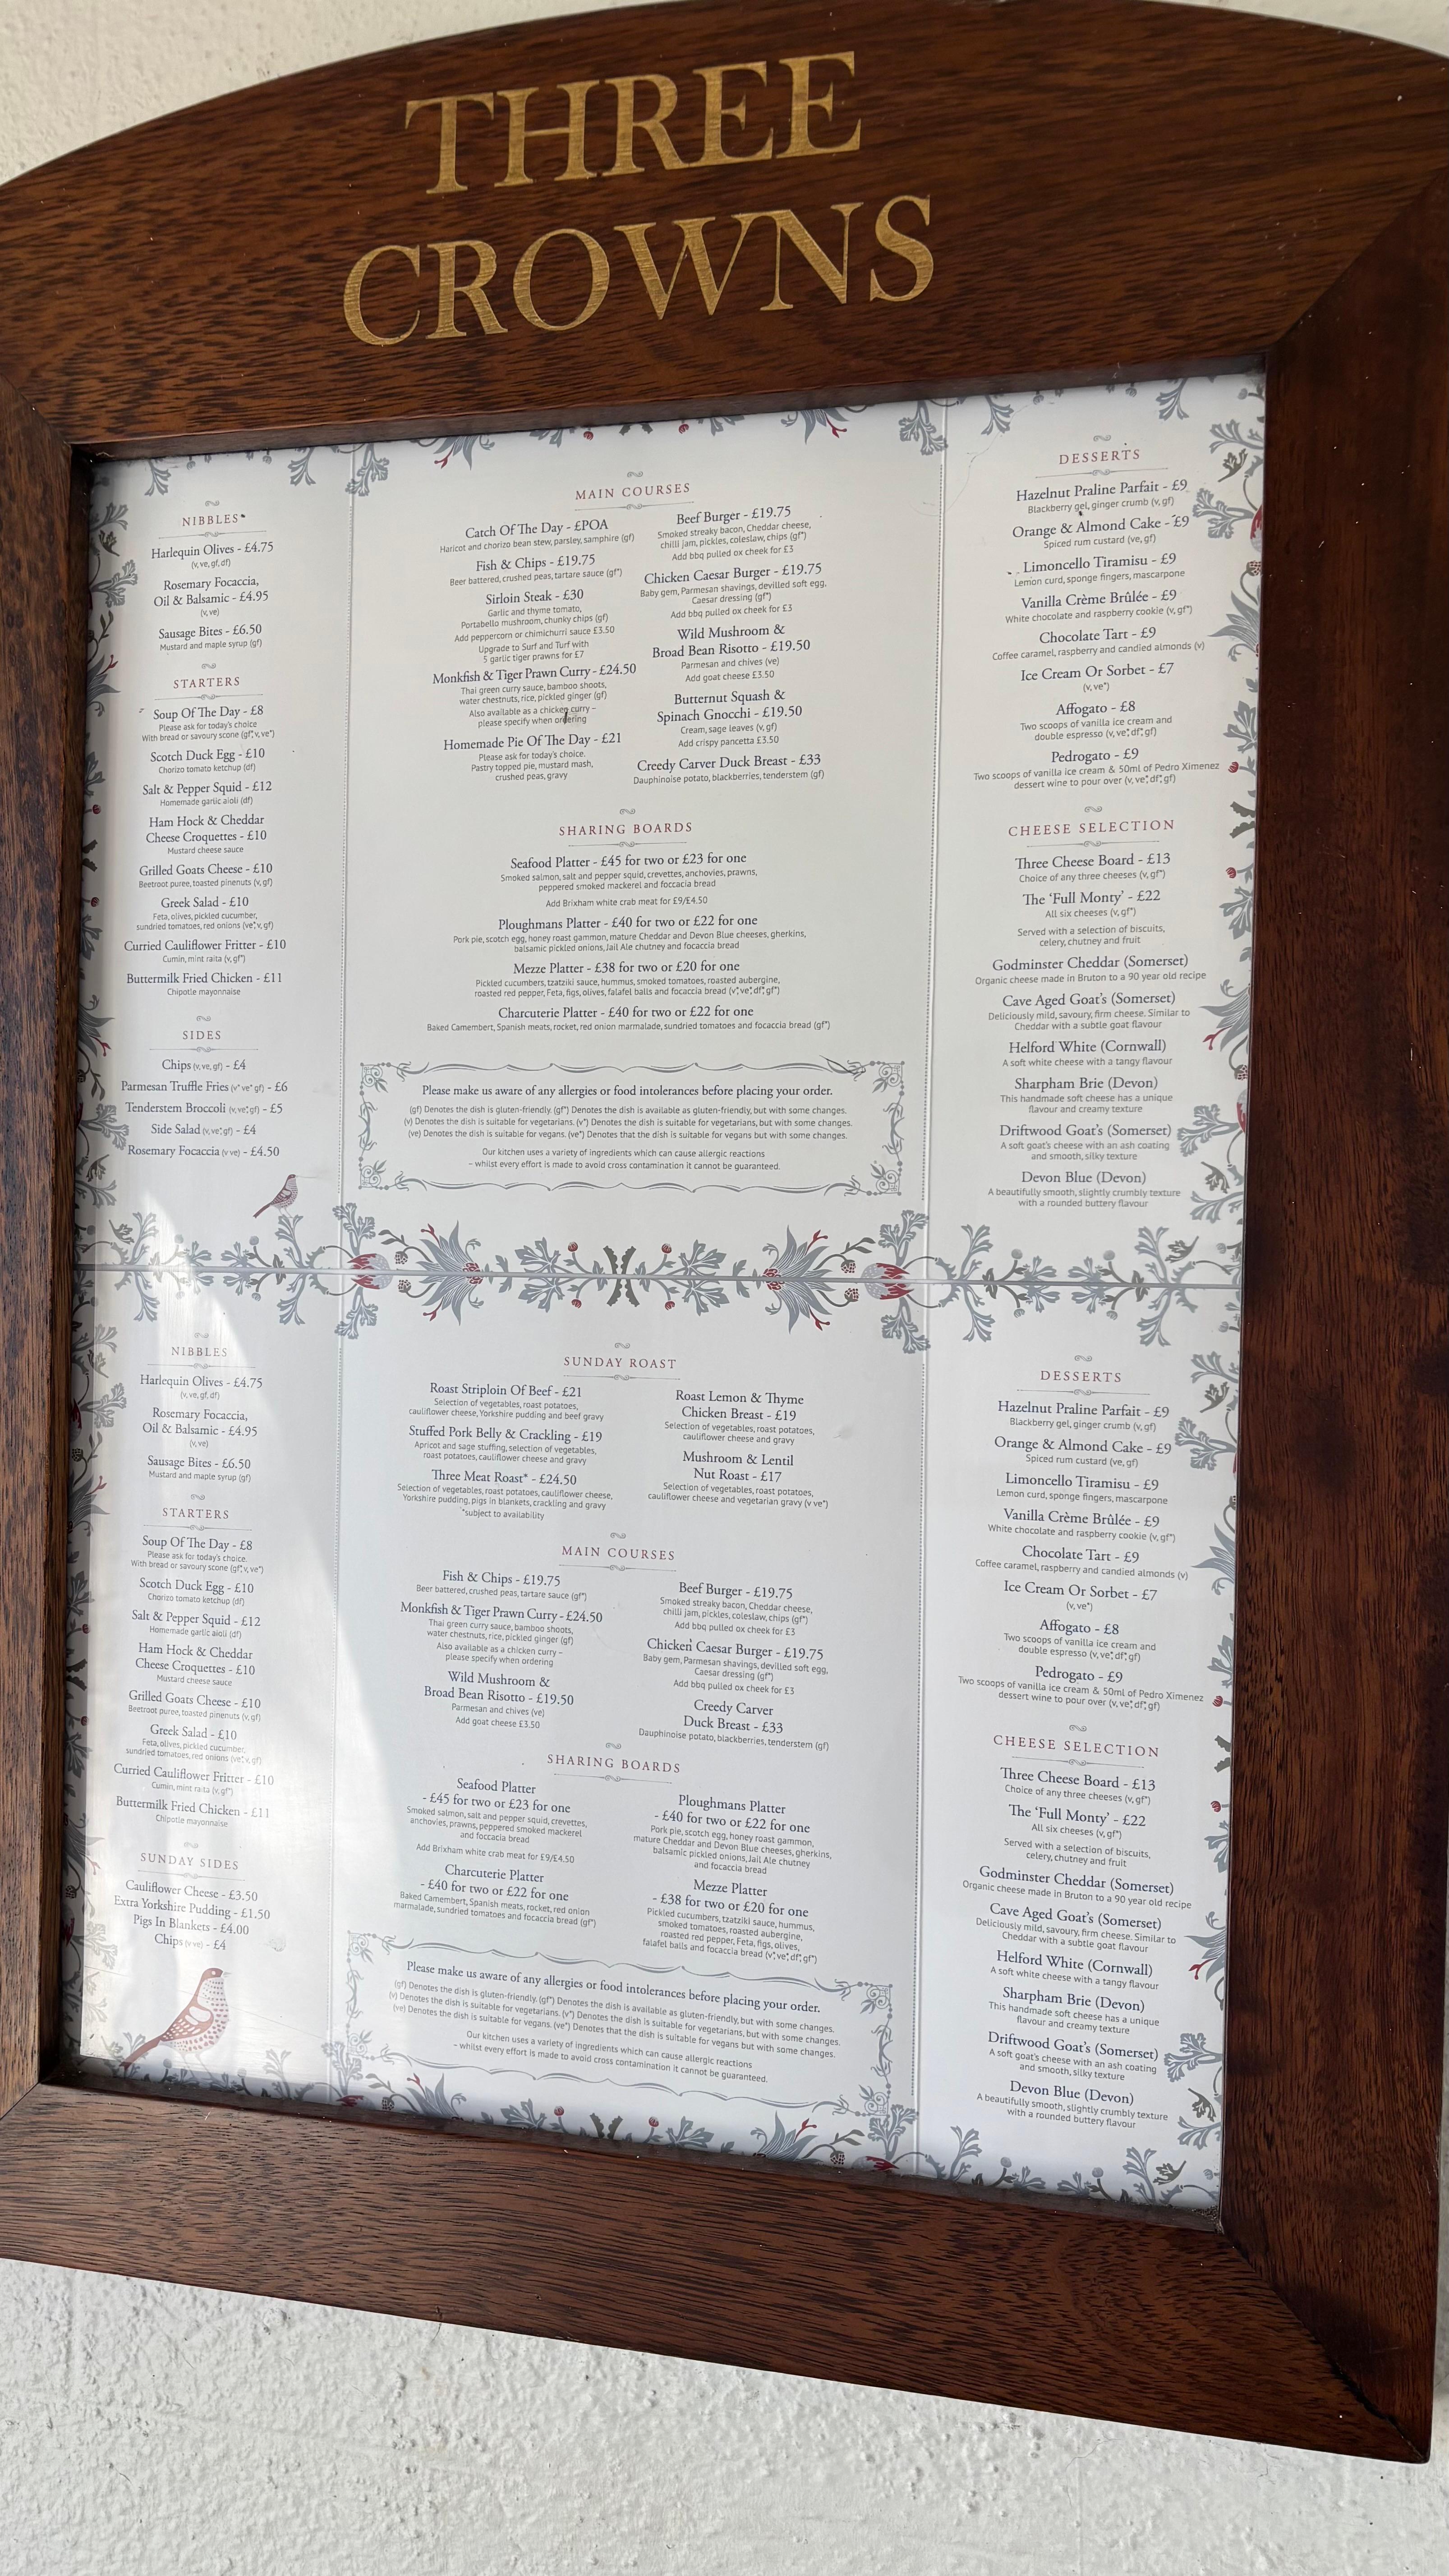 THREE
CROWNS
NIBBLES
Harlequin Olives - £4.75
(v, ve, gf, df)
Rosemary Focaccia,
Oil & Balsamic - £4.95
(v, ve)
Sausage Bites - £6.50
Mustard and maple syrup (gf)
STARTERS
Soup Of The Day - £8
Please ask for today's choice
With bread or savoury scone (gf*, v, ve*)
Scotch Duck Egg - £10
Chorizo tomato ketchup (df)
Salt & Pepper Squid - £12
Homemade garlic aioli (df)
Ham Hock & Cheddar
Cheese Croquettes - £10
Mustard cheese sauce
Grilled Goats Cheese - £10
Beetroot puree, toasted pinenuts (v, gf)
Greek Salad - £10
Feta, olives, pickled cucumber,
sundried tomatoes, red onions (ve*, v, gf)
Curried Cauliflower Fritter - £10
Cumin, mint raita (v, gf*)
Buttermilk Fried Chicken - £11
Chipotle mayonnaise
SIDES
Chips (v, ve, gf) - £4
Parmesan Truffle Fries (v* ve* gf) - £6
Tenderstem Broccoli (v, ve*, gf) - £5
Side Salad (v, ve*, gf) - £4
Rosemary Focaccia (v ve) - £4.50
MAIN COURSES
Catch Of The Day - £POA
Haricot and chorizo bean stew, parsley, samphire (gf)
Fish & Chips - £19.75
Beer battered, crushed peas, tartare sauce (gf*)
Sirloin Steak - £30
Garlic and thyme tomato,
Portabello mushroom, chunky chips (gf)
Add peppercorn or chimichurri sauce £3.50
Upgrade to Surf and Turf with
5 garlic tiger prawns for £7
Monkfish & Tiger Prawn Curry - £24.50
Thai green curry sauce, bamboo shoots,
water chestnuts, rice, pickled ginger (gf)
Also available as a chicken curry –
please specify when ordering
Homemade Pie Of The Day - £21
Please ask for today's choice.
Pastry topped pie, mustard mash,
crushed peas, gravy
Beef Burger - £19.75
Smoked streaky bacon, Cheddar cheese,
chilli jam, pickles, coleslaw, chips (gf*)
Add bbq pulled ox cheek for £3
Chicken Caesar Burger - £19.75
Baby gem, Parmesan shavings, devilled soft egg,
Caesar dressing (gf*)
Add bbq pulled ox cheek for £3
Wild Mushroom &
Broad Bean Risotto - £19.50
Parmesan and chives (ve)
Add goat cheese £3.50
Butternut Squash &
Spinach Gnocchi - £19.50
Cream, sage leaves (v, gf)
Add crispy pancetta £3.50
Creedy Carver Duck Breast - £33
Dauphinoise potato, blackberries, tenderstem (gf)
SHARING BOARDS
Seafood Platter - £45 for two or £23 for one
Smoked salmon, salt and pepper squid, crevettes, anchovies, prawns,
peppered smoked mackerel and foccacia bread
Add Brixham white crab meat for £9/£4.50
Ploughmans Platter - £40 for two or £22 for one
Pork pie, scotch egg, honey roast gammon, mature Cheddar and Devon Blue cheeses, gherkins,
balsamic pickled onions, Jail Ale chutney and focaccia bread
Mezze Platter - £38 for two or £20 for one
Pickled cucumbers, tzatziki sauce, hummus, smoked tomatoes, roasted aubergine,
roasted red pepper, Feta, figs, olives, falafel balls and focaccia bread (v*, ve*, df*, gf*)
Charcuterie Platter - £40 for two or £22 for one
Baked Camembert, Spanish meats, rocket, red onion marmalade, sundried tomatoes and focaccia bread (gf*)
Please make us aware of any allergies or food intolerances before placing your order.
(gf) Denotes the dish is gluten-friendly. (gf*) Denotes the dish is available as gluten-friendly, but with some changes.
(v) Denotes the dish is suitable for vegetarians. (v*) Denotes the dish is suitable for vegetarians, but with some changes.
(ve) Denotes the dish is suitable for vegans. (ve*) Denotes that the dish is suitable for vegans but with some changes.
Our kitchen uses a variety of ingredients which can cause allergic reactions
– whilst every effort is made to avoid cross contamination it cannot be guaranteed.
DESSERTS
Hazelnut Praline Parfait - £9
Blackberry gel, ginger crumb (v, gf)
Orange & Almond Cake - £9
Spiced rum custard (ve, gf)
Limoncello Tiramisu - £9
Lemon curd, sponge fingers, mascarpone
Vanilla Crème Brûlée - £9
White chocolate and raspberry cookie (v, gf*)
Chocolate Tart - £9
Coffee caramel, raspberry and candied almonds (v)
Ice Cream Or Sorbet - £7
(v, ve*)
Affogato - £8
Two scoops of vanilla ice cream and
double espresso (v, ve*, df*, gf)
Pedrogato - £9
Two scoops of vanilla ice cream & 50ml of Pedro Ximenez
dessert wine to pour over (v, ve*, df*, gf)
CHEESE SELECTION
Three Cheese Board - £13
Choice of any three cheeses (v, gf*)
The 'Full Monty' - £22
All six cheeses (v, gf*)
Served with a selection of biscuits,
celery, chutney and fruit
Godminster Cheddar (Somerset)
Organic cheese made in Bruton to a 90 year old recipe
Cave Aged Goat's (Somerset)
Deliciously mild, savoury, firm cheese. Similar to
Cheddar with a subtle goat flavour
Helford White (Cornwall)
A soft white cheese with a tangy flavour
Sharpham Brie (Devon)
This handmade soft cheese has a unique
flavour and creamy texture
Driftwood Goat's (Somerset)
A soft goat's cheese with an ash coating
and smooth, silky texture
Devon Blue (Devon)
A beautifully smooth, slightly crumbly texture
with a rounded buttery flavour
NIBBLES
Harlequin Olives - £4.75
(v, ve, gf, df)
Rosemary Focaccia,
Oil & Balsamic - £4.95
(v, ve)
Sausage Bites - £6.50
Mustard and maple syrup (gf)
STARTERS
Soup Of The Day - £8
Please ask for today's choice.
With bread or savoury scone (gf*, v, ve*)
Scotch Duck Egg - £10
Chorizo tomato ketchup (df)
Salt & Pepper Squid - £12
Homemade garlic aioli (df)
Ham Hock & Cheddar
Cheese Croquettes - £10
Mustard cheese sauce
Grilled Goats Cheese - £10
Beetroot puree, toasted pinenuts (v, gf)
Greek Salad - £10
Feta, olives, pickled cucumber,
sundried tomatoes, red onions (ve*, v, gf)
Curried Cauliflower Fritter - £10
Cumin, mint raita (v, gf*)
Buttermilk Fried Chicken - £11
Chipotle mayonnaise
SUNDAY SIDES
Cauliflower Cheese - £3.50
Extra Yorkshire Pudding - £1.50
Pigs In Blankets - £4.00
Chips (v ve) - £4
SUNDAY ROAST
Roast Striploin Of Beef - £21
Selection of vegetables, roast potatoes,
cauliflower cheese, Yorkshire pudding and beef gravy
Stuffed Pork Belly & Crackling - £19
Apricot and sage stuffing, selection of vegetables,
roast potatoes, cauliflower cheese and gravy
Three Meat Roast* - £24.50
Selection of vegetables, roast potatoes, cauliflower cheese,
Yorkshire pudding, pigs in blankets, crackling and gravy
*subject to availability
Roast Lemon & Thyme
Chicken Breast - £19
Selection of vegetables, roast potatoes,
cauliflower cheese and gravy
Mushroom & Lentil
Nut Roast - £17
Selection of vegetables, roast potatoes,
cauliflower cheese and vegetarian gravy (v ve*)
MAIN COURSES
Fish & Chips - £19.75
Beer battered, crushed peas, tartare sauce (gf*)
Monkfish & Tiger Prawn Curry - £24.50
Thai green curry sauce, bamboo shoots,
water chestnuts, rice, pickled ginger (gf)
Also available as a chicken curry –
please specify when ordering
Wild Mushroom &
Broad Bean Risotto - £19.50
Parmesan and chives (ve)
Add goat cheese £3.50
Beef Burger - £19.75
Smoked streaky bacon, Cheddar cheese,
chilli jam, pickles, coleslaw, chips (gf*)
Add bbq pulled ox cheek for £3
Chicken Caesar Burger - £19.75
Baby gem, Parmesan shavings, devilled soft egg,
Caesar dressing (gf*)
Add bbq pulled ox cheek for £3
Creedy Carver
Duck Breast - £33
Dauphinoise potato, blackberries, tenderstem (gf)
SHARING BOARDS
Seafood Platter
- £45 for two or £23 for one
Smoked salmon, salt and pepper squid, crevettes,
anchovies, prawns, peppered smoked mackerel
and foccacia bread
Add Brixham white crab meat for £9/£4.50
Charcuterie Platter
- £40 for two or £22 for one
Baked Camembert, Spanish meats, rocket, red onion
marmalade, sundried tomatoes and focaccia bread (gf*)
Ploughmans Platter
- £40 for two or £22 for one
Pork pie, scotch egg, honey roast gammon,
mature Cheddar and Devon Blue cheeses, gherkins,
balsamic pickled onions, Jail Ale chutney
and focaccia bread
Mezze Platter
- £38 for two or £20 for one
Pickled cucumbers, tzatziki sauce, hummus,
smoked tomatoes, roasted aubergine,
roasted red pepper, Feta, figs, olives,
falafel balls and focaccia bread (v*, ve*, df*, gf*)
Please make us aware of any allergies or food intolerances before placing your order.
(gf) Denotes the dish is gluten-friendly. (gf*) Denotes the dish is available as gluten-friendly, but with some changes.
(v) Denotes the dish is suitable for vegetarians. (v*) Denotes the dish is suitable for vegetarians, but with some changes.
(ve) Denotes the dish is suitable for vegans. (ve*) Denotes that the dish is suitable for vegans but with some changes.
Our kitchen uses a variety of ingredients which can cause allergic reactions
– whilst every effort is made to avoid cross contamination it cannot be guaranteed.
DESSERTS
Hazelnut Praline Parfait - £9
Blackberry gel, ginger crumb (v, gf)
Orange & Almond Cake - £9
Spiced rum custard (ve, gf)
Limoncello Tiramisu - £9
Lemon curd, sponge fingers, mascarpone
Vanilla Crème Brûlée - £9
White chocolate and raspberry cookie (v, gf*)
Chocolate Tart - £9
Coffee caramel, raspberry and candied almonds (v)
Ice Cream Or Sorbet - £7
(v, ve*)
Affogato - £8
Two scoops of vanilla ice cream and
double espresso (v, ve*, df*, gf)
Pedrogato - £9
Two scoops of vanilla ice cream & 50ml of Pedro Ximenez
dessert wine to pour over (v, ve*, df*, gf)
CHEESE SELECTION
Three Cheese Board - £13
Choice of any three cheeses (v, gf*)
The 'Full Monty' - £22
All six cheeses (v, gf*)
Served with a selection of biscuits,
celery, chutney and fruit
Godminster Cheddar (Somerset)
Organic cheese made in Bruton to a 90 year old recipe
Cave Aged Goat's (Somerset)
Deliciously mild, savoury, firm cheese. Similar to
Cheddar with a subtle goat flavour
Helford White (Cornwall)
A soft white cheese with a tangy flavour
Sharpham Brie (Devon)
This handmade soft cheese has a unique
flavour and creamy texture
Driftwood Goat's (Somerset)
A soft goat's cheese with an ash coating
and smooth, silky texture
Devon Blue (Devon)
A beautifully smooth, slightly crumbly texture
with a rounded buttery flavour